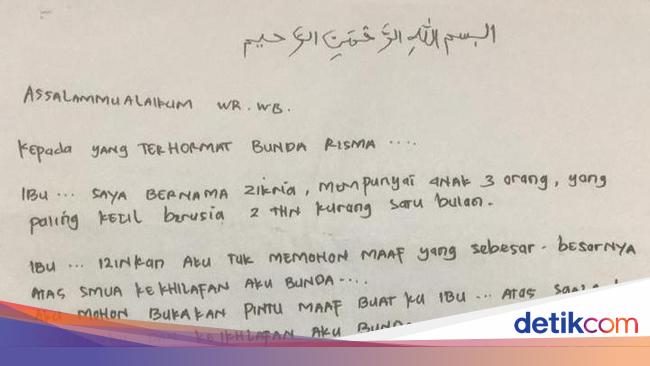 البسم الله الرحمن الرحيم
ASSALAMMUALAIKUM WR. WB.
Kepada yang TERHORMAT BUNDA RISMA ....
IBU ... SAYA BERNAMA ZIKRIA, Mempunyai ANAK 3 orang, yang
paling KECIL berusia 2 THN kurang satu bulan.
IBU ... IZINkan AKU TUK MEMOHON MAAF yang sebesar-besarnya
ATAS SMUA KEKHILAFAN AKU BUNDA ....
AKU MOHON BUKAKAN PINTU MAAF BUAT KU IBU ... ATAS
KEKHILAFAN AKU
detikcom